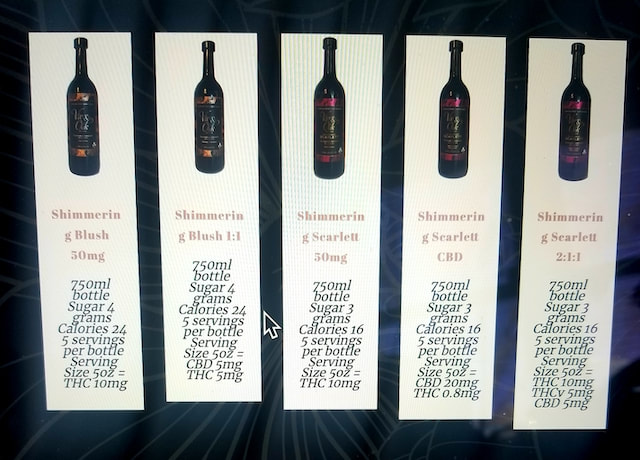 Shimmerin
g Blush
50mg
750ml
bottle
Sugar 4
grams
Calories 24
5 servings
per bottle
Serving
Size 5oz =
THC 10mg
Shimmerin
g Blush 1:1
750ml
bottle
Sugar 4
grams
Calories 24
5 servings
per bottle
Serving
Size 5oz =
CBD 5mg
THC 5mg
Shimmerin
g Scarlett
50mg
750ml
bottle
Sugar 3
grams
Calories 16
5 servings
per bottle
Serving
Size 5oz =
THC 10mg
Shimmerin
g Scarlett
CBD
750ml
bottle
Sugar 3
grams
Calories 16
5 servings
per bottle
Serving
Size 5oz =
CBD 20mg
THC 0.8mg
Shimmerin
g Scarlett
2:1:1
750ml
bottle
Sugar 3
grams
Calories 16
5 servings
per bottle
Serving
Size 5oz =
THC 10mg
THCv 5mg
CBD 5mg